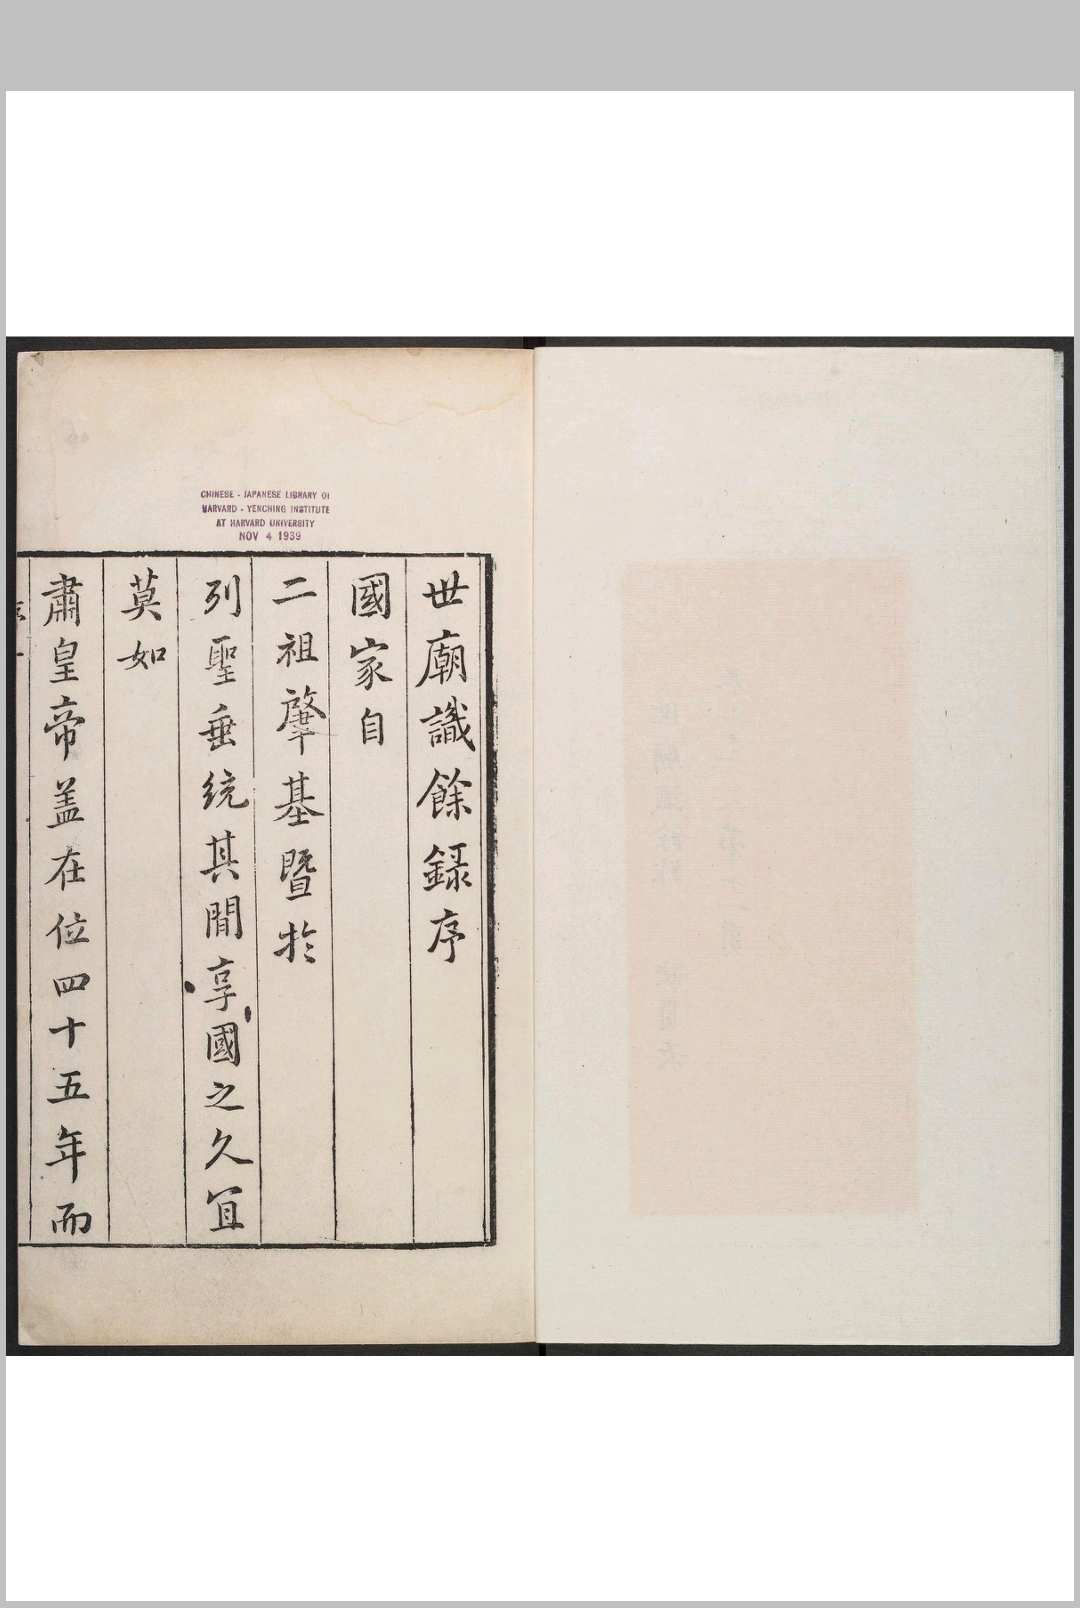 世廟識餘錄序
國家自
二祖肇基暨扵
列聖垂統其間享國之久宜
莫如
肅皇帝盖在位四十五年而
CHINESE - JAPANESE LIBRARY OF
HARVARD - YENCHING INSTITUTE
AT HARVARD UNIVERSITY
NOV 4 1939